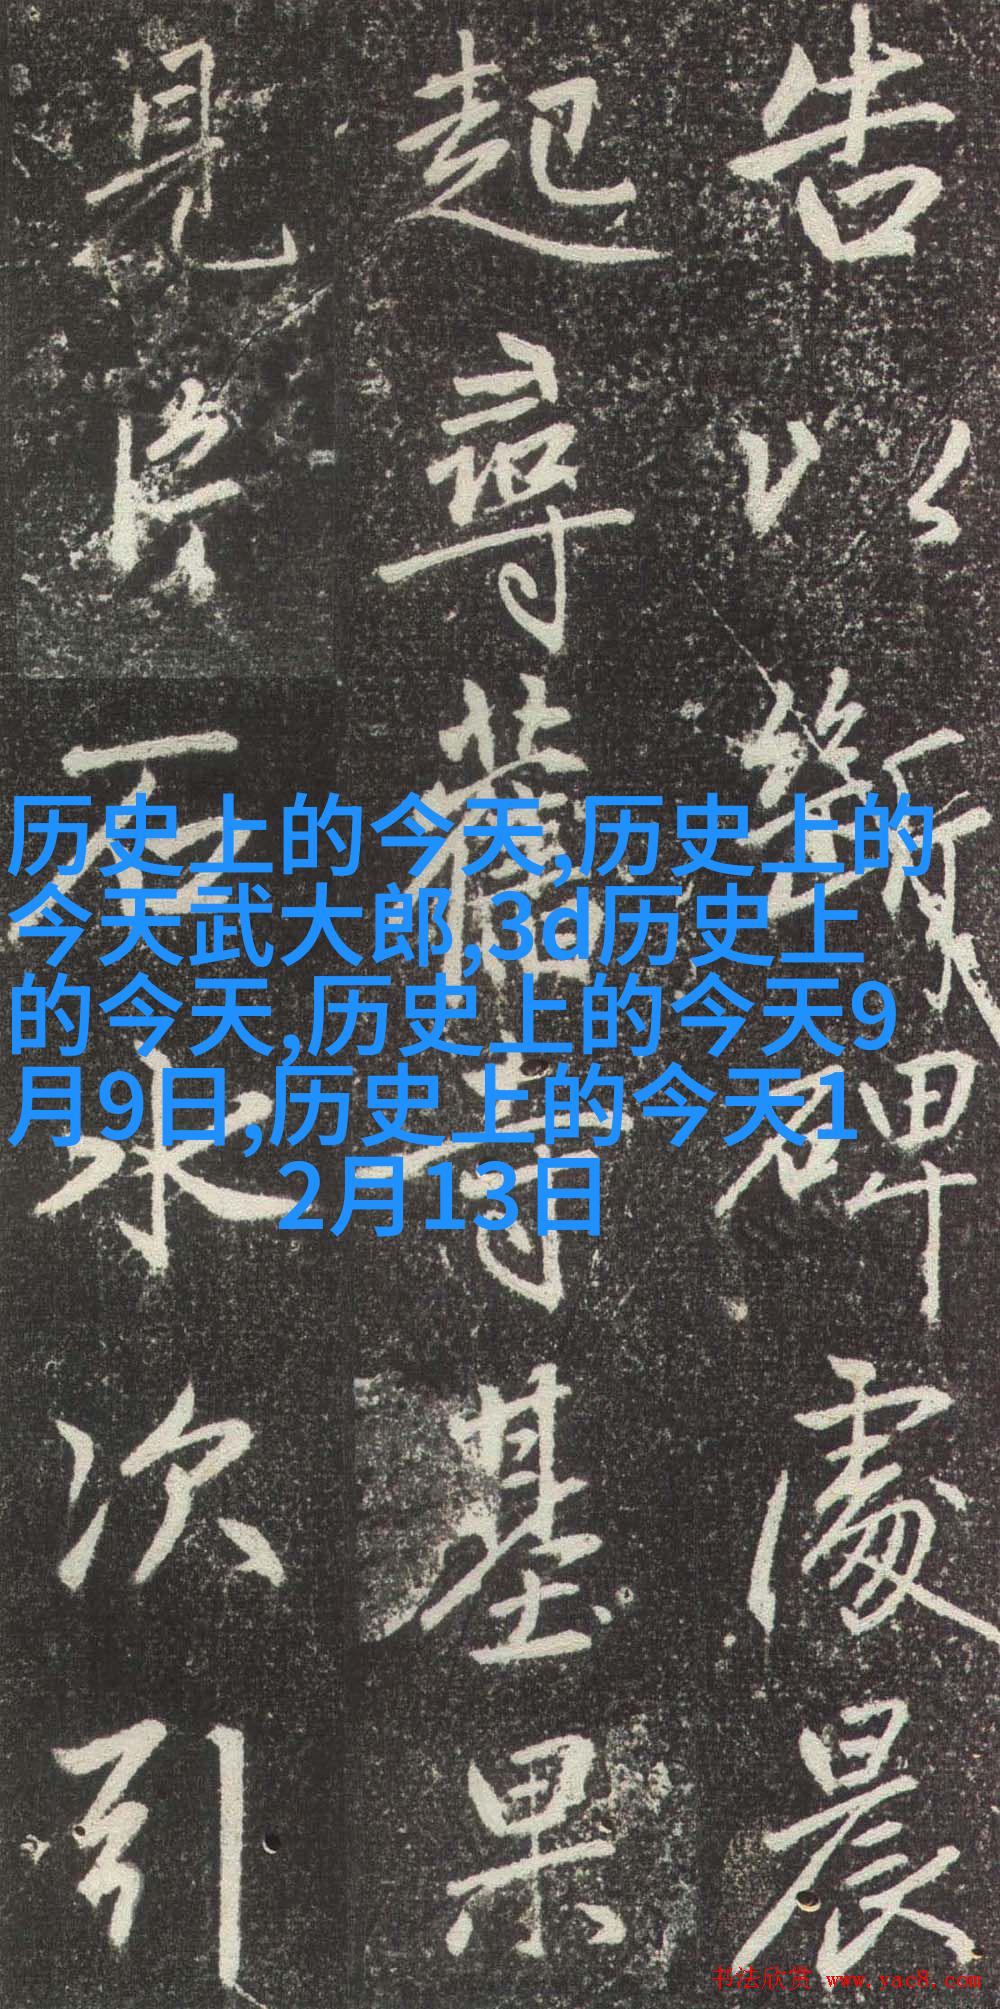 告以斷碑處晨
起尋舊寺基果
見片石水次引
历史上的今天,历史上的
今天武大郎,3d历史上
的今天,历史上的今天9
月9日,历史上的今天1
2月13日
书法欣赏 www.yac8.com